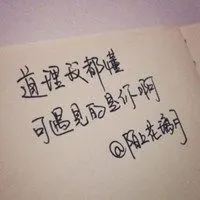 道理我都懂
可遇见的是你啊
@陌上花满月